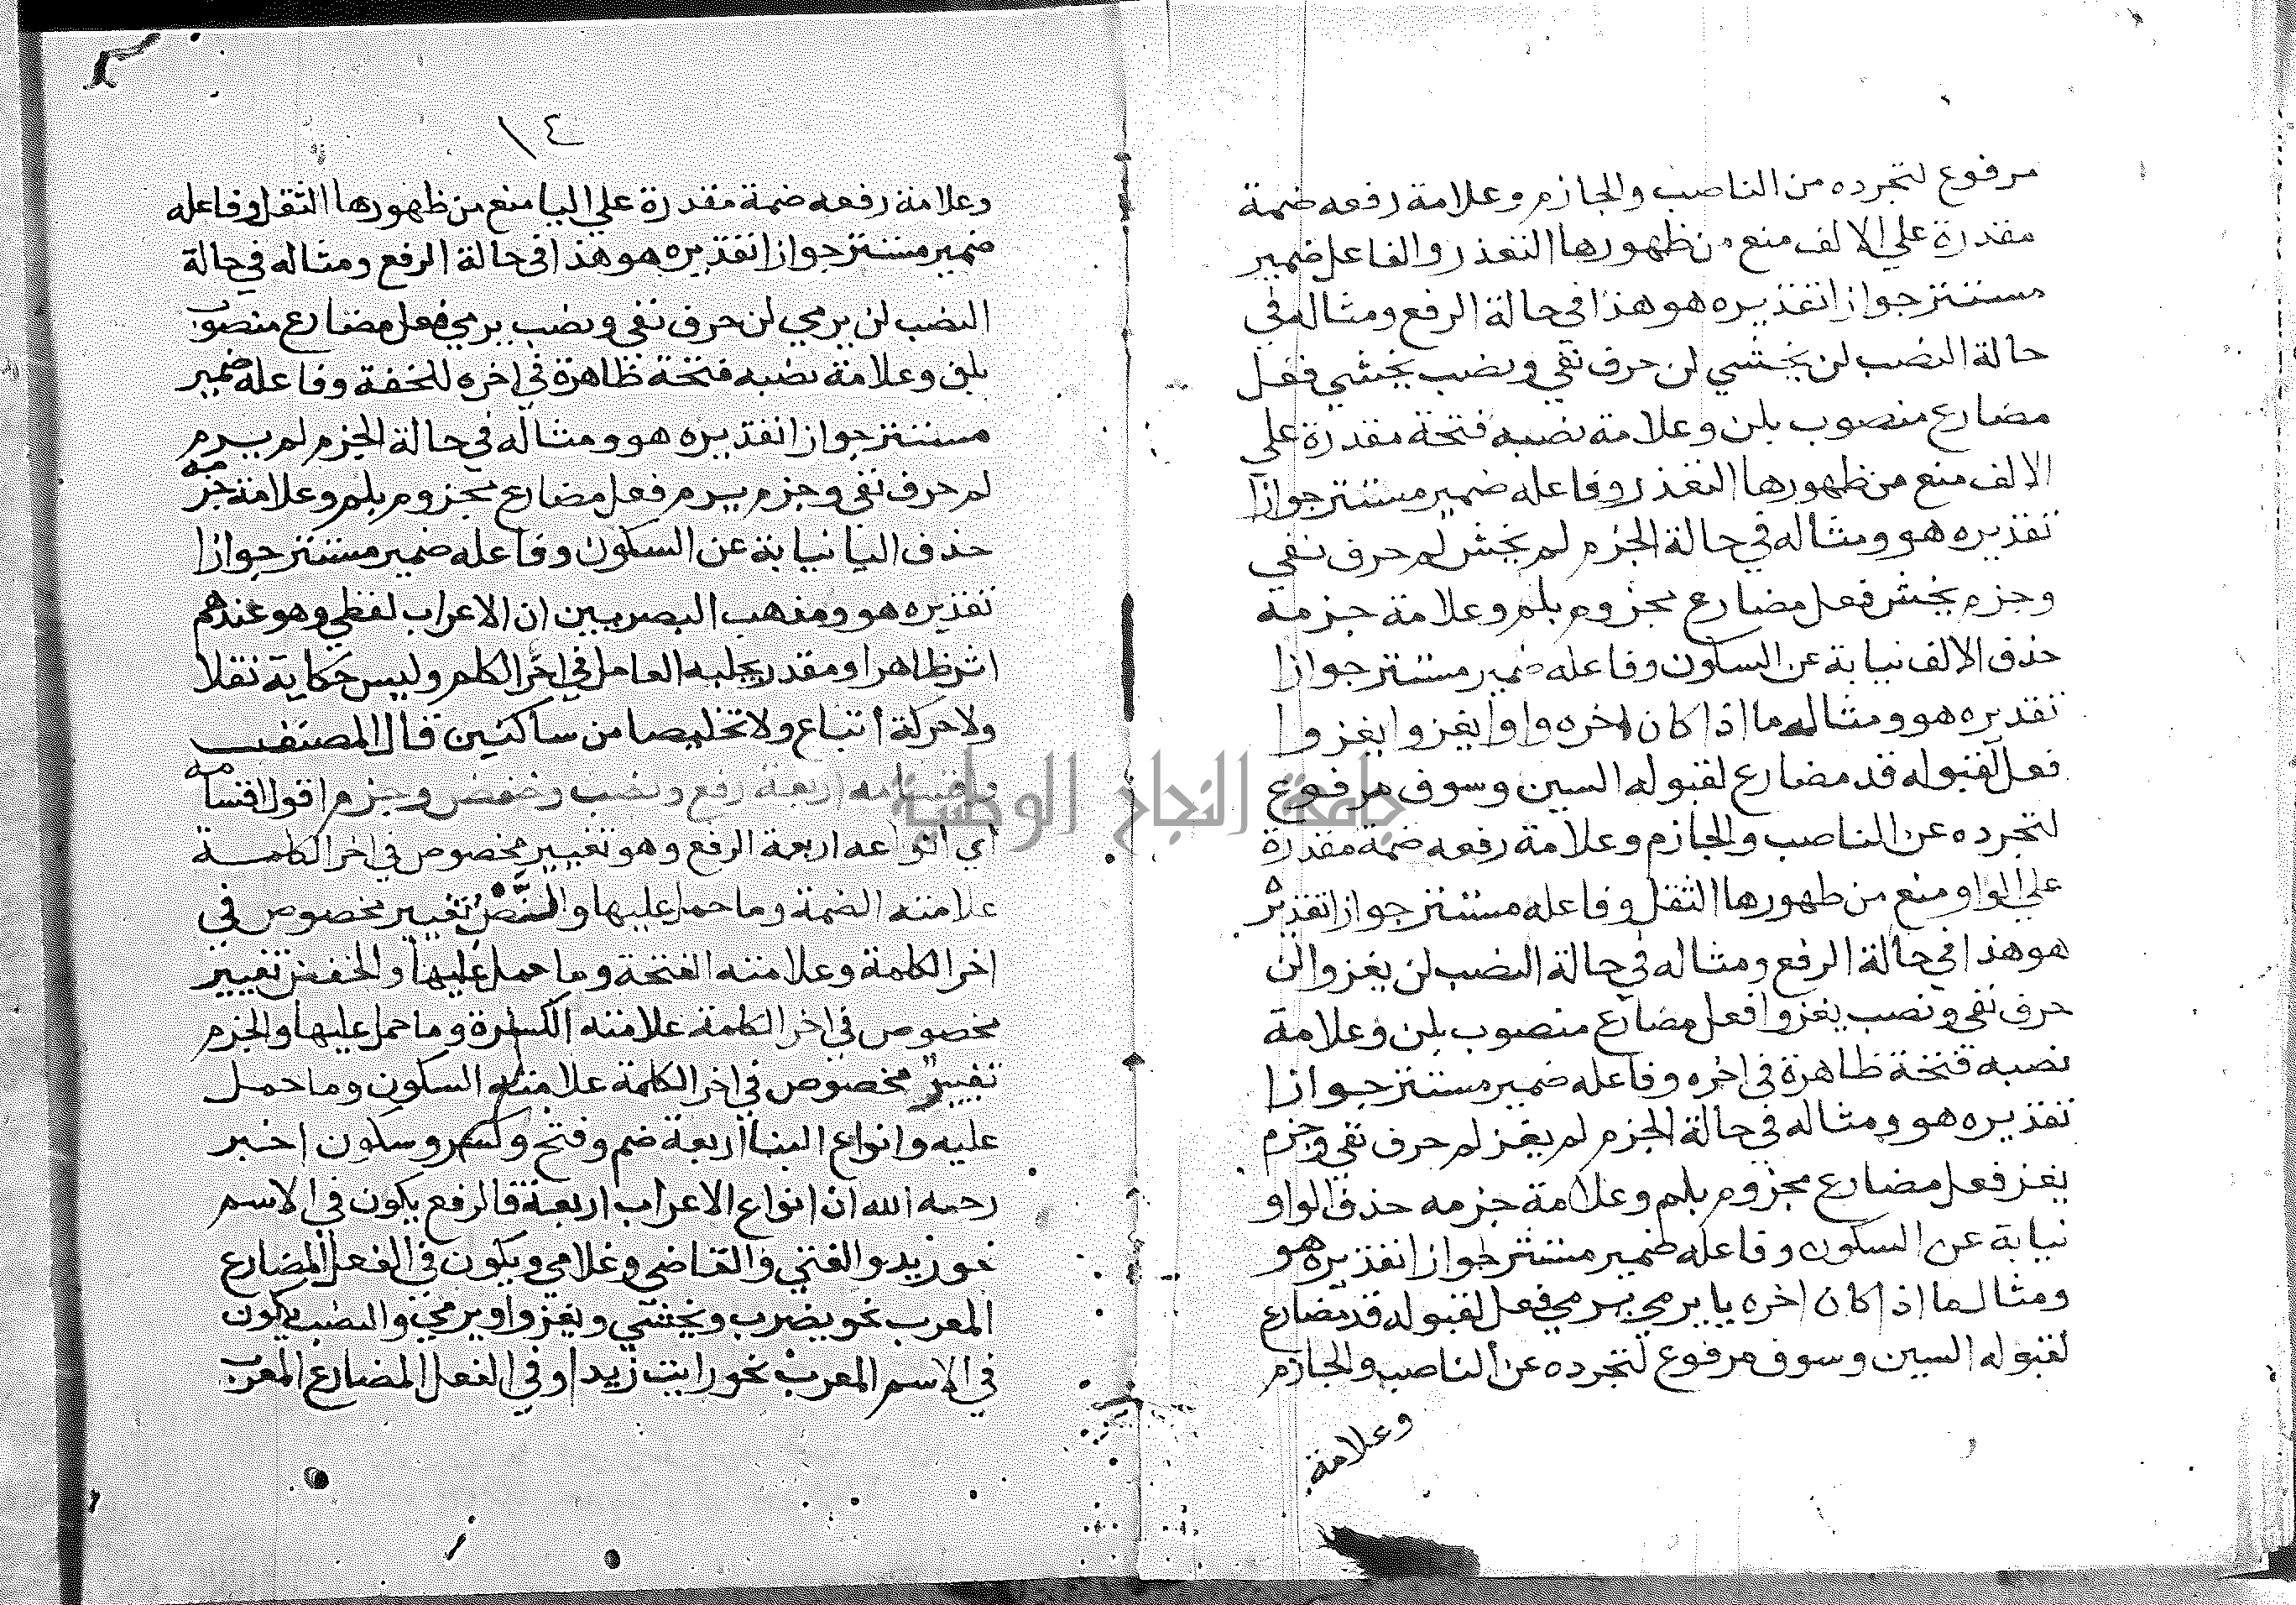 مرفوع لتجرده من الناصب والجازم وعلامة رفعه ضمة
مقدرة علي الالف منع من ظهورها التعذر والفاعل ضمير
مستتر جوازا تقديره هو هذا في حالة الرفع ومثاله في
حالة النصب لن يخشي لن حرف نفي ونصب يخشي فعل
مضارع منصوب بلن وعلامة نصبه فتحة مقدرة علي
الالف منع من ظهورها التعذر وفاعله ضمير مستتر جوازا
تقديره هو ومثاله في حالة الجزم لم يخش لم حرف نفي
وجزم يخش فعل مضارع مجزوم بلم وعلامة جزمه
حذف الالف نيابة عن السكون وفاعله ضمير مستتر جوازا
تقديره هو ومثاله ما اذا كان اخره واوا يغزوا يغزوا
فعل لقبوله قد مضارع لقبوله السين وسوف مرفوع
لتجرده عن الناصب والجازم وعلامة رفعه ضمة مقدرة
علي الواو منع من ظهورها الثقل وفاعله مستتر جوازا تقديره
هو هذا في حالة الرفع ومثاله في حالة النصب لن يغزوا لن
حرف نفي ونصب يغزوا فعل مضارع منصوب بلن وعلامة
نصبه فتحة ظاهرة في اخره وفاعله ضمير مستتر جوازا
تقديره هو ومثاله في حالة الجزم لم يغز لم حرف نفي وجزم
يغز فعل مضارع مجزوم بلم وعلامة جزمه حذف الواو
نيابة عن السكون وفاعله ضمير مستتر جوازا تقديره هو
ومثال ما اذا كان اخره يا يرمي يرمي فعل لقبوله قد مضارع
لقبوله السين وسوف مرفوع لتجرده عن الناصب والجازم
وعلامة
١٤
وعلامة رفعه ضمة مقدرة علي اليا منع من ظهورها الثقل وفاعله
ضمير مستتر جوازا تقديره هو هذا في حالة الرفع ومثاله في حالة
النصب لن يرمي لن حرف نفي ونصب يرمي فعل مضارع منصوب
بلن وعلامة نصبه فتحة ظاهرة في اخره للخفة وفاعله ضمير
مستتر جوازا تقديره هو ومثاله في حالة الجزم لم يرم
لم حرف نفي وجزم يرم فعل مضارع مجزوم بلم وعلامة جزمه
حذف اليا نيابة عن السكون وفاعله ضمير مستتر جوازا
تقديره هو ومذهب البصريين ان الاعراب لفظي وهو عندهم
اثر ظاهر او مقدر يجلبه العامل في اخر الكلم وليس حكاية نقلا
ولا حركة اتباع ولا تخليصا من ساكنين قال المصنف
واقسامه اربعة رفع ونصب وخفض وجزم اقول اقسامه
اي انواعه اربعة الرفع وهو تغيير مخصوص في اخر الكلمة
علامته الضمة وما حمل عليها والنصب تغيير مخصوص في
اخر الكلمة وعلامته الفتحة وما حمل عليها والخفض تغيير
مخصوص في اخر الكلمة علامته الكسرة وما حمل عليها والجزم
تغيير مخصوص في اخر الكلمة علامته السكون وما حمل
عليه وانواع البنا اربعة ضم وفتح وكسر وسكون اخبر
رحمه الله ان انواع الاعراب اربعة فالرفع يكون في الاسم
نحو زيد والفتي والقاضي وغلامي ويكون في الفعل المضارع
المعرب نحو يضرب ويخشي ويغزوا ويرمي والنصب يكون
في الاسم المعرب نحو رايت زيدا وفي الفعل المضارع المعرب
جامعة النجاح الوطنية